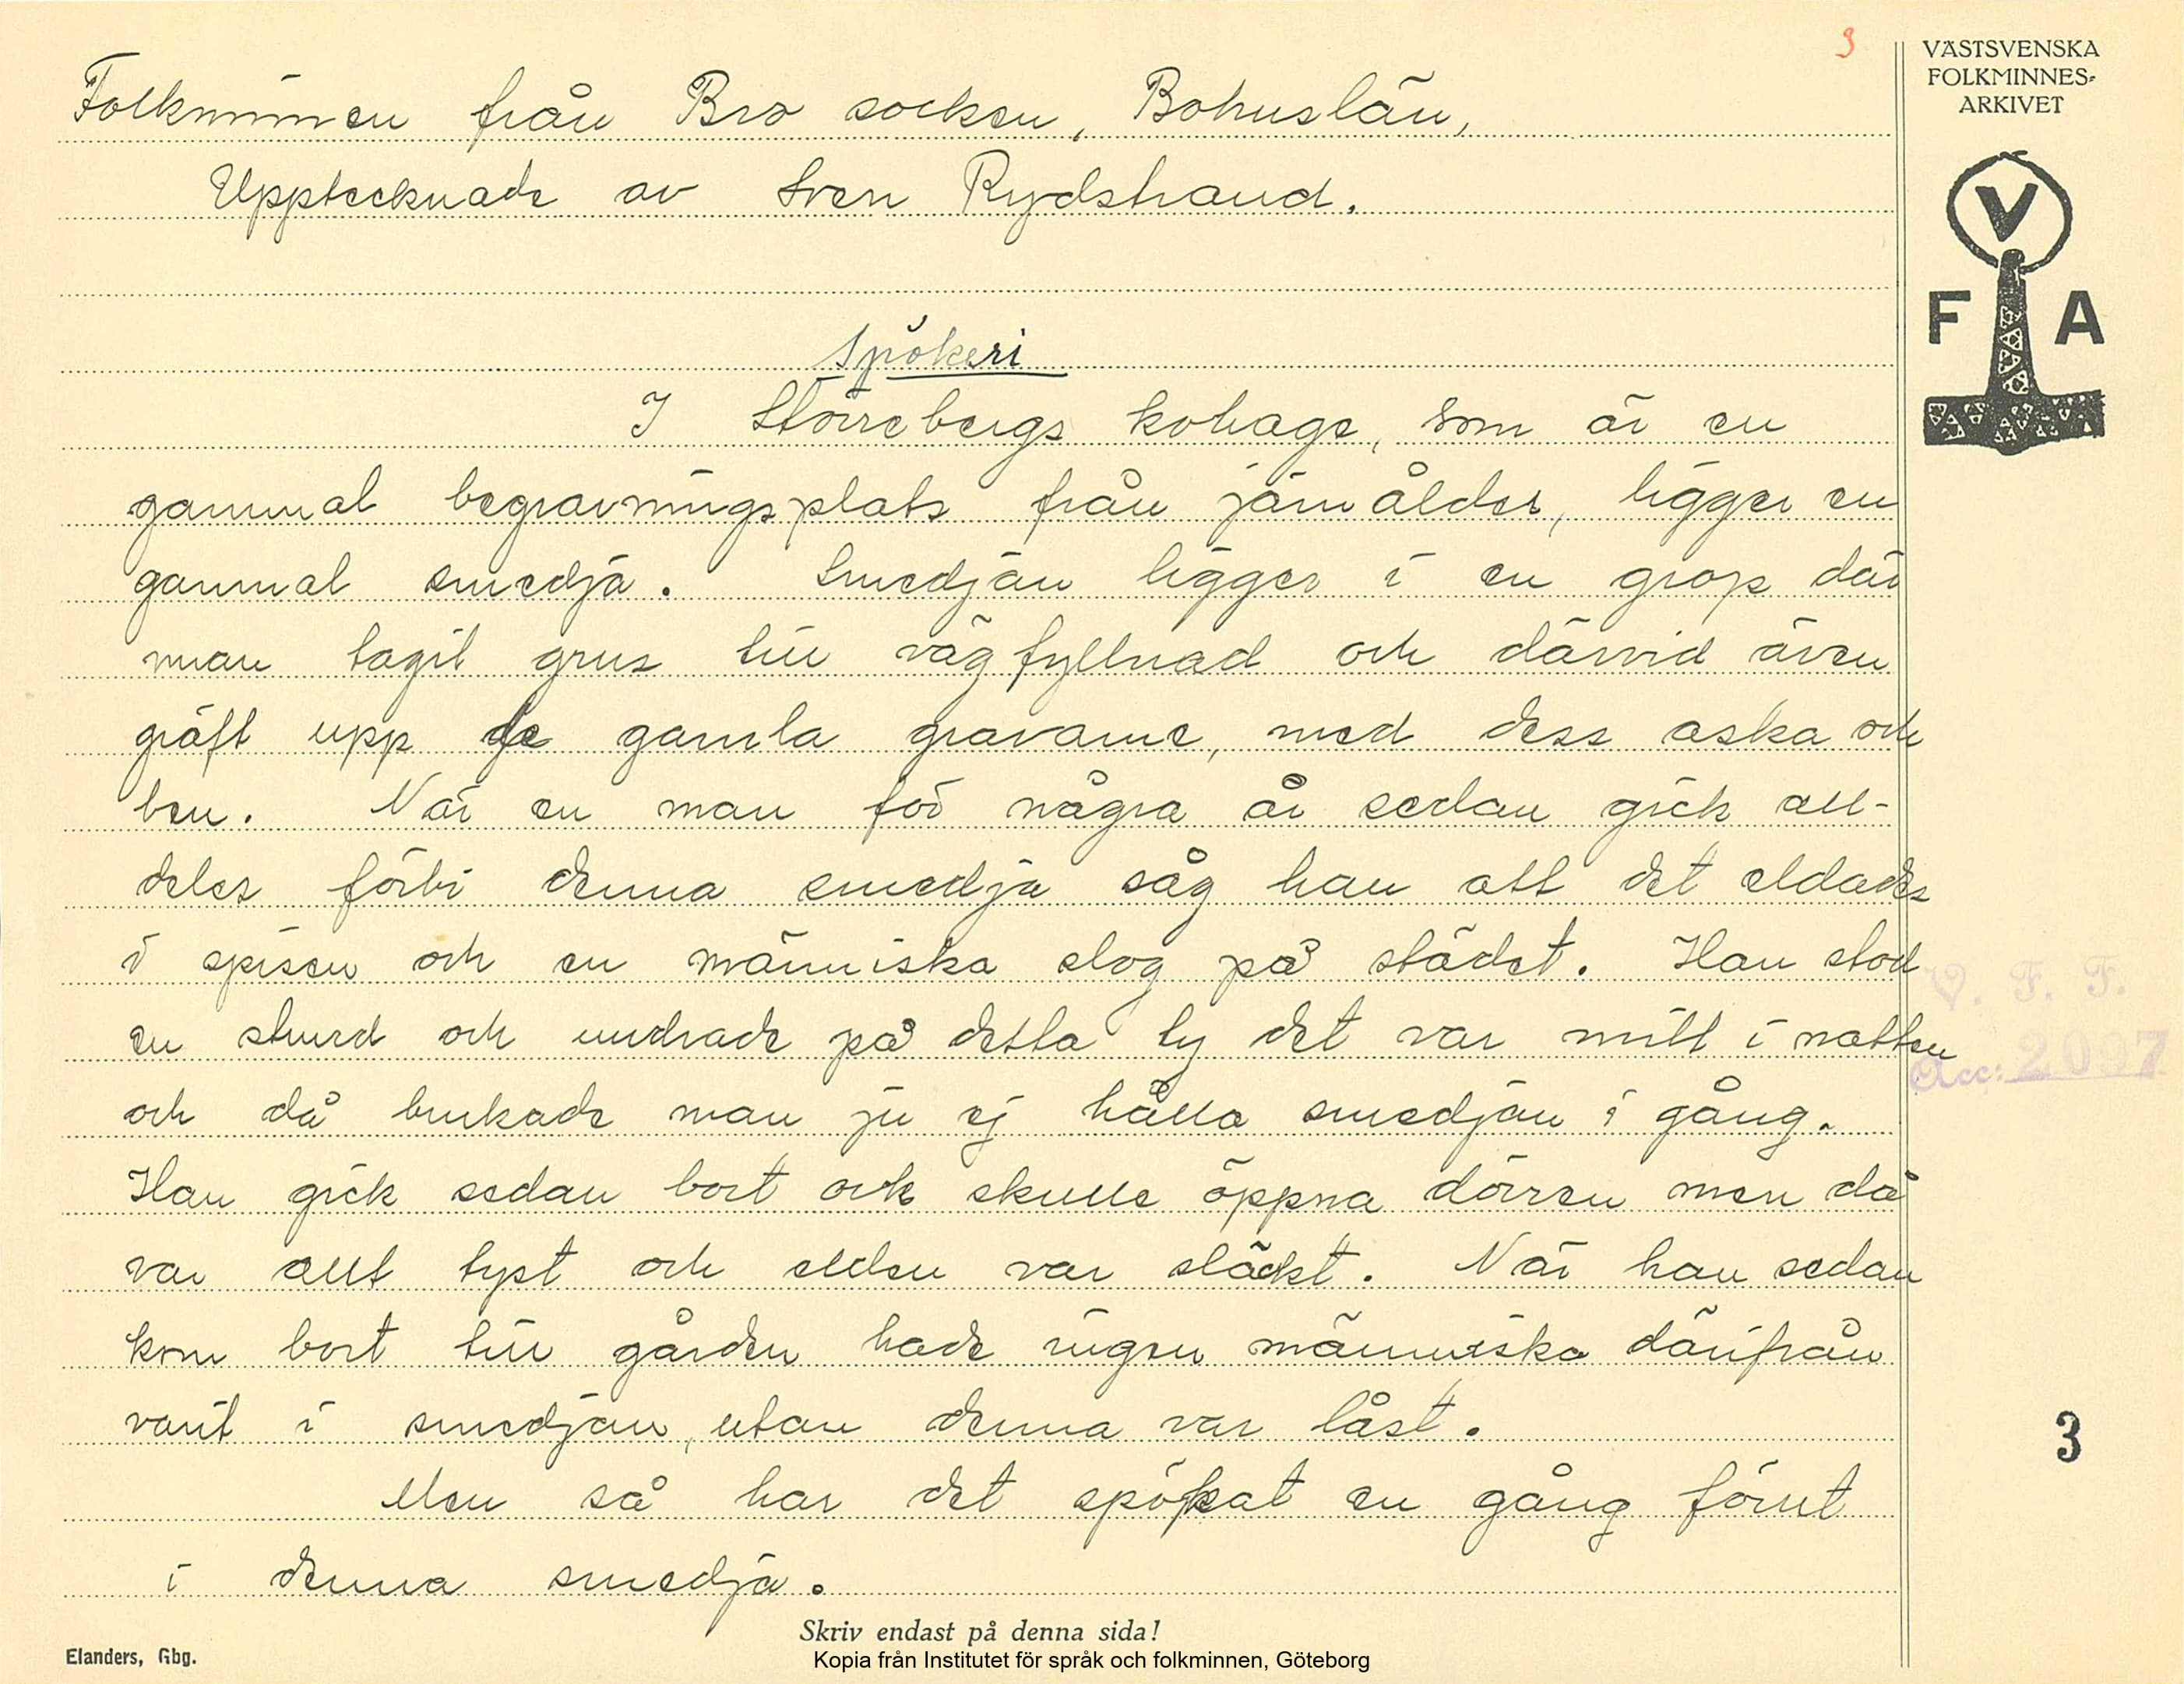 9
VÄSTSVENSKA
FOLKMINNES-
ARKIVET
V
F A
Folkminnen från Bro socken, Bohuslän,
Upptecknade av Sven Rydstrand.
Spökeri
I Störrebergs kohage, som är en
gammal begravningsplats från järnålder, ligger en
gammal smedja. Smedjan ligger i en grop där
man tagit grus till vägfyllnad och därvid även
gräft upp de gamla gravarne, med dess aska och
ben. När en man för några år sedan gick all-
deles förbi denna smedja såg han att det eldades
i spisen och en människa slog på städet. Han stod
en stund och undrade på detta ty det var mitt i natten
och då brukade man ju ej hålla smedjan i gång.
Han gick sedan bort och skulle öppna dörren men då
var allt tyst och elden var släckt. När han sedan
kom bort till gården hade ingen människa därifrån
varit i smedjan, utan denna var låst.
Men så har det spökat en gång förut
i denna smedja.
V. F. F.
Acc: 2097
3
Skriv endast på denna sida!
Elanders, Gbg.
Kopia från Institutet för språk och folkminnen, Göteborg